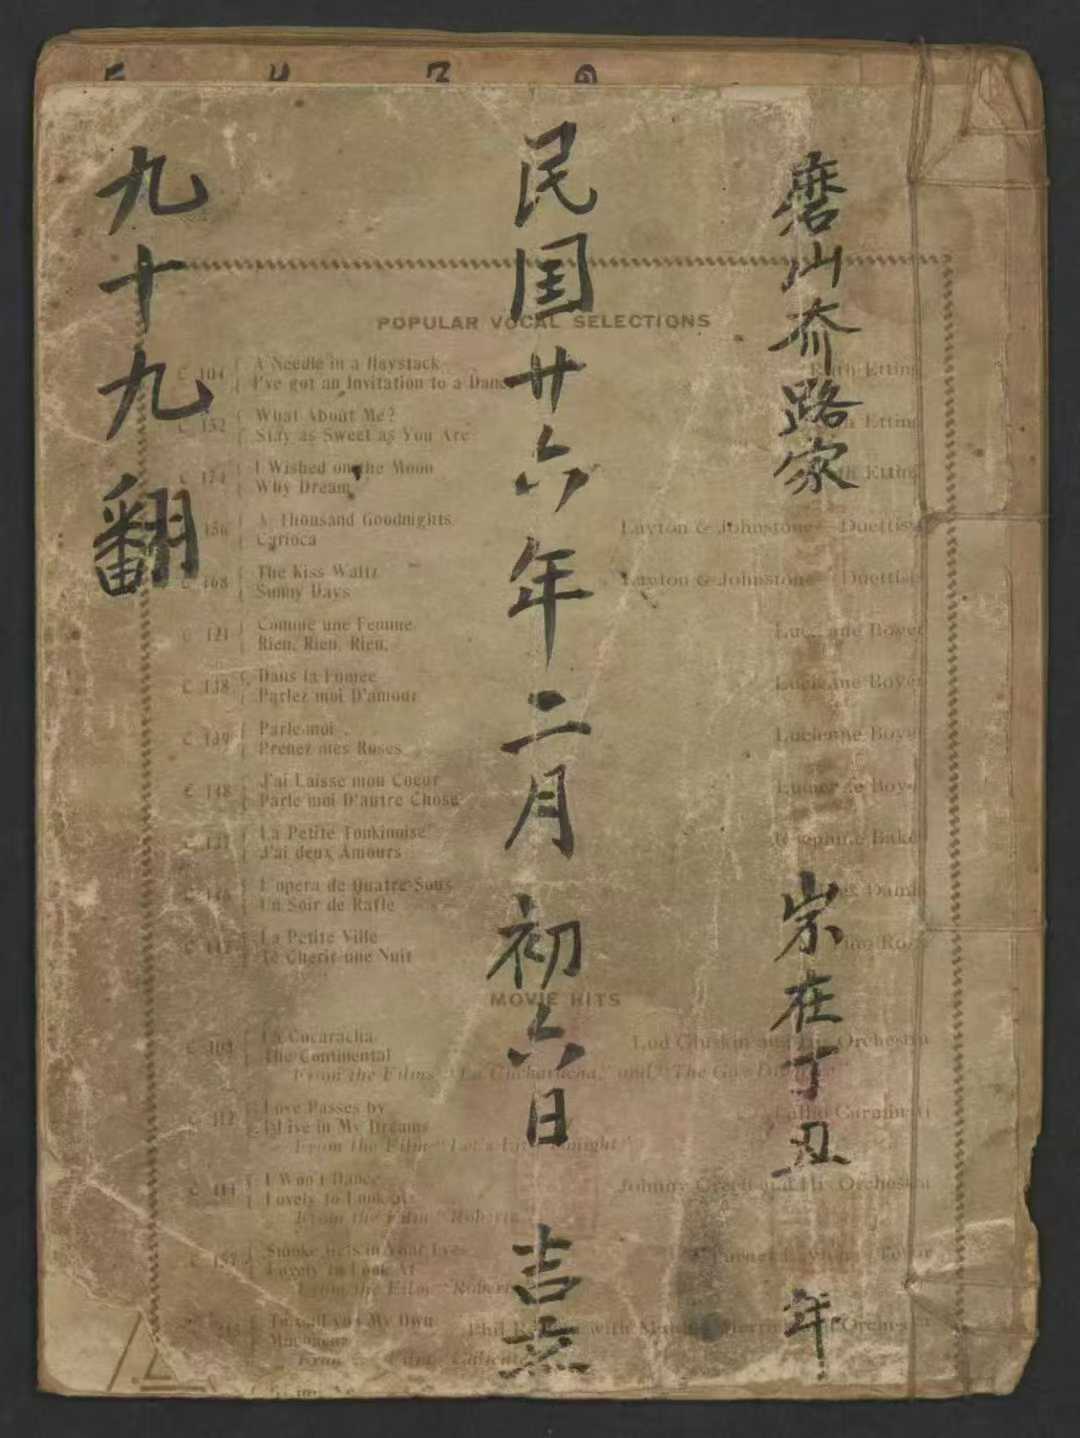 磨山齐路家 宗在丁丑 年
民国廿六年二月初六日 吉立
九十九翻
POPULAR VOCAL SELECTIONS
C 104 A Needle in a Haystack
I've got an Invitation to a Dance Ruth Etting
C 152 What About Me?
Stay as Sweet as You Are Etting
C 174 I Wished on the Moon
Why Dream Etting
156 A Thousand Goodnights
Carioca Layton & Johnstone—Duettists
C 168 The Kiss Waltz
Sunny Days Layton & Johnstone—Duettists
C 121 Comme une Femme
Rien, Rien, Rien. Lucienne Boyer
C 138 Dans la Fumee
Parlez moi D'amour Lucienne Boyer
C 139 Parle-moi
Prenez mes Roses Lucienne Boyer
C 148 J'ai Laisse mon Coeur
Parle moi D'autre Chose Lucienne Boyer
La Petite Tonkinoise
J'ai deux Amours Josephine Baker
L'opera de Quatre Sous
Un Soir de Rafle Damia
La Petite Ville
Te Cherir une Nuit
MOVIE HITS
C 103 La Cucaracha
The Continental Lud Gluskin and His Orchestra
From the Films "La Cucharacha," and "The Gay Divorcee"
C 112 Love Passes by
I Live in My Dreams
From the Film "Let's Live Tonight"
C 114 I Won't Dance
Lovely to Look At Johnny Green and His Orchestra
From the Film "Roberta"
C 157 Smoke Gets in Your Eyes
Lovely to Look At
From the Film "Roberta"
I'm My Own
Muchacha Phil with Orchestra